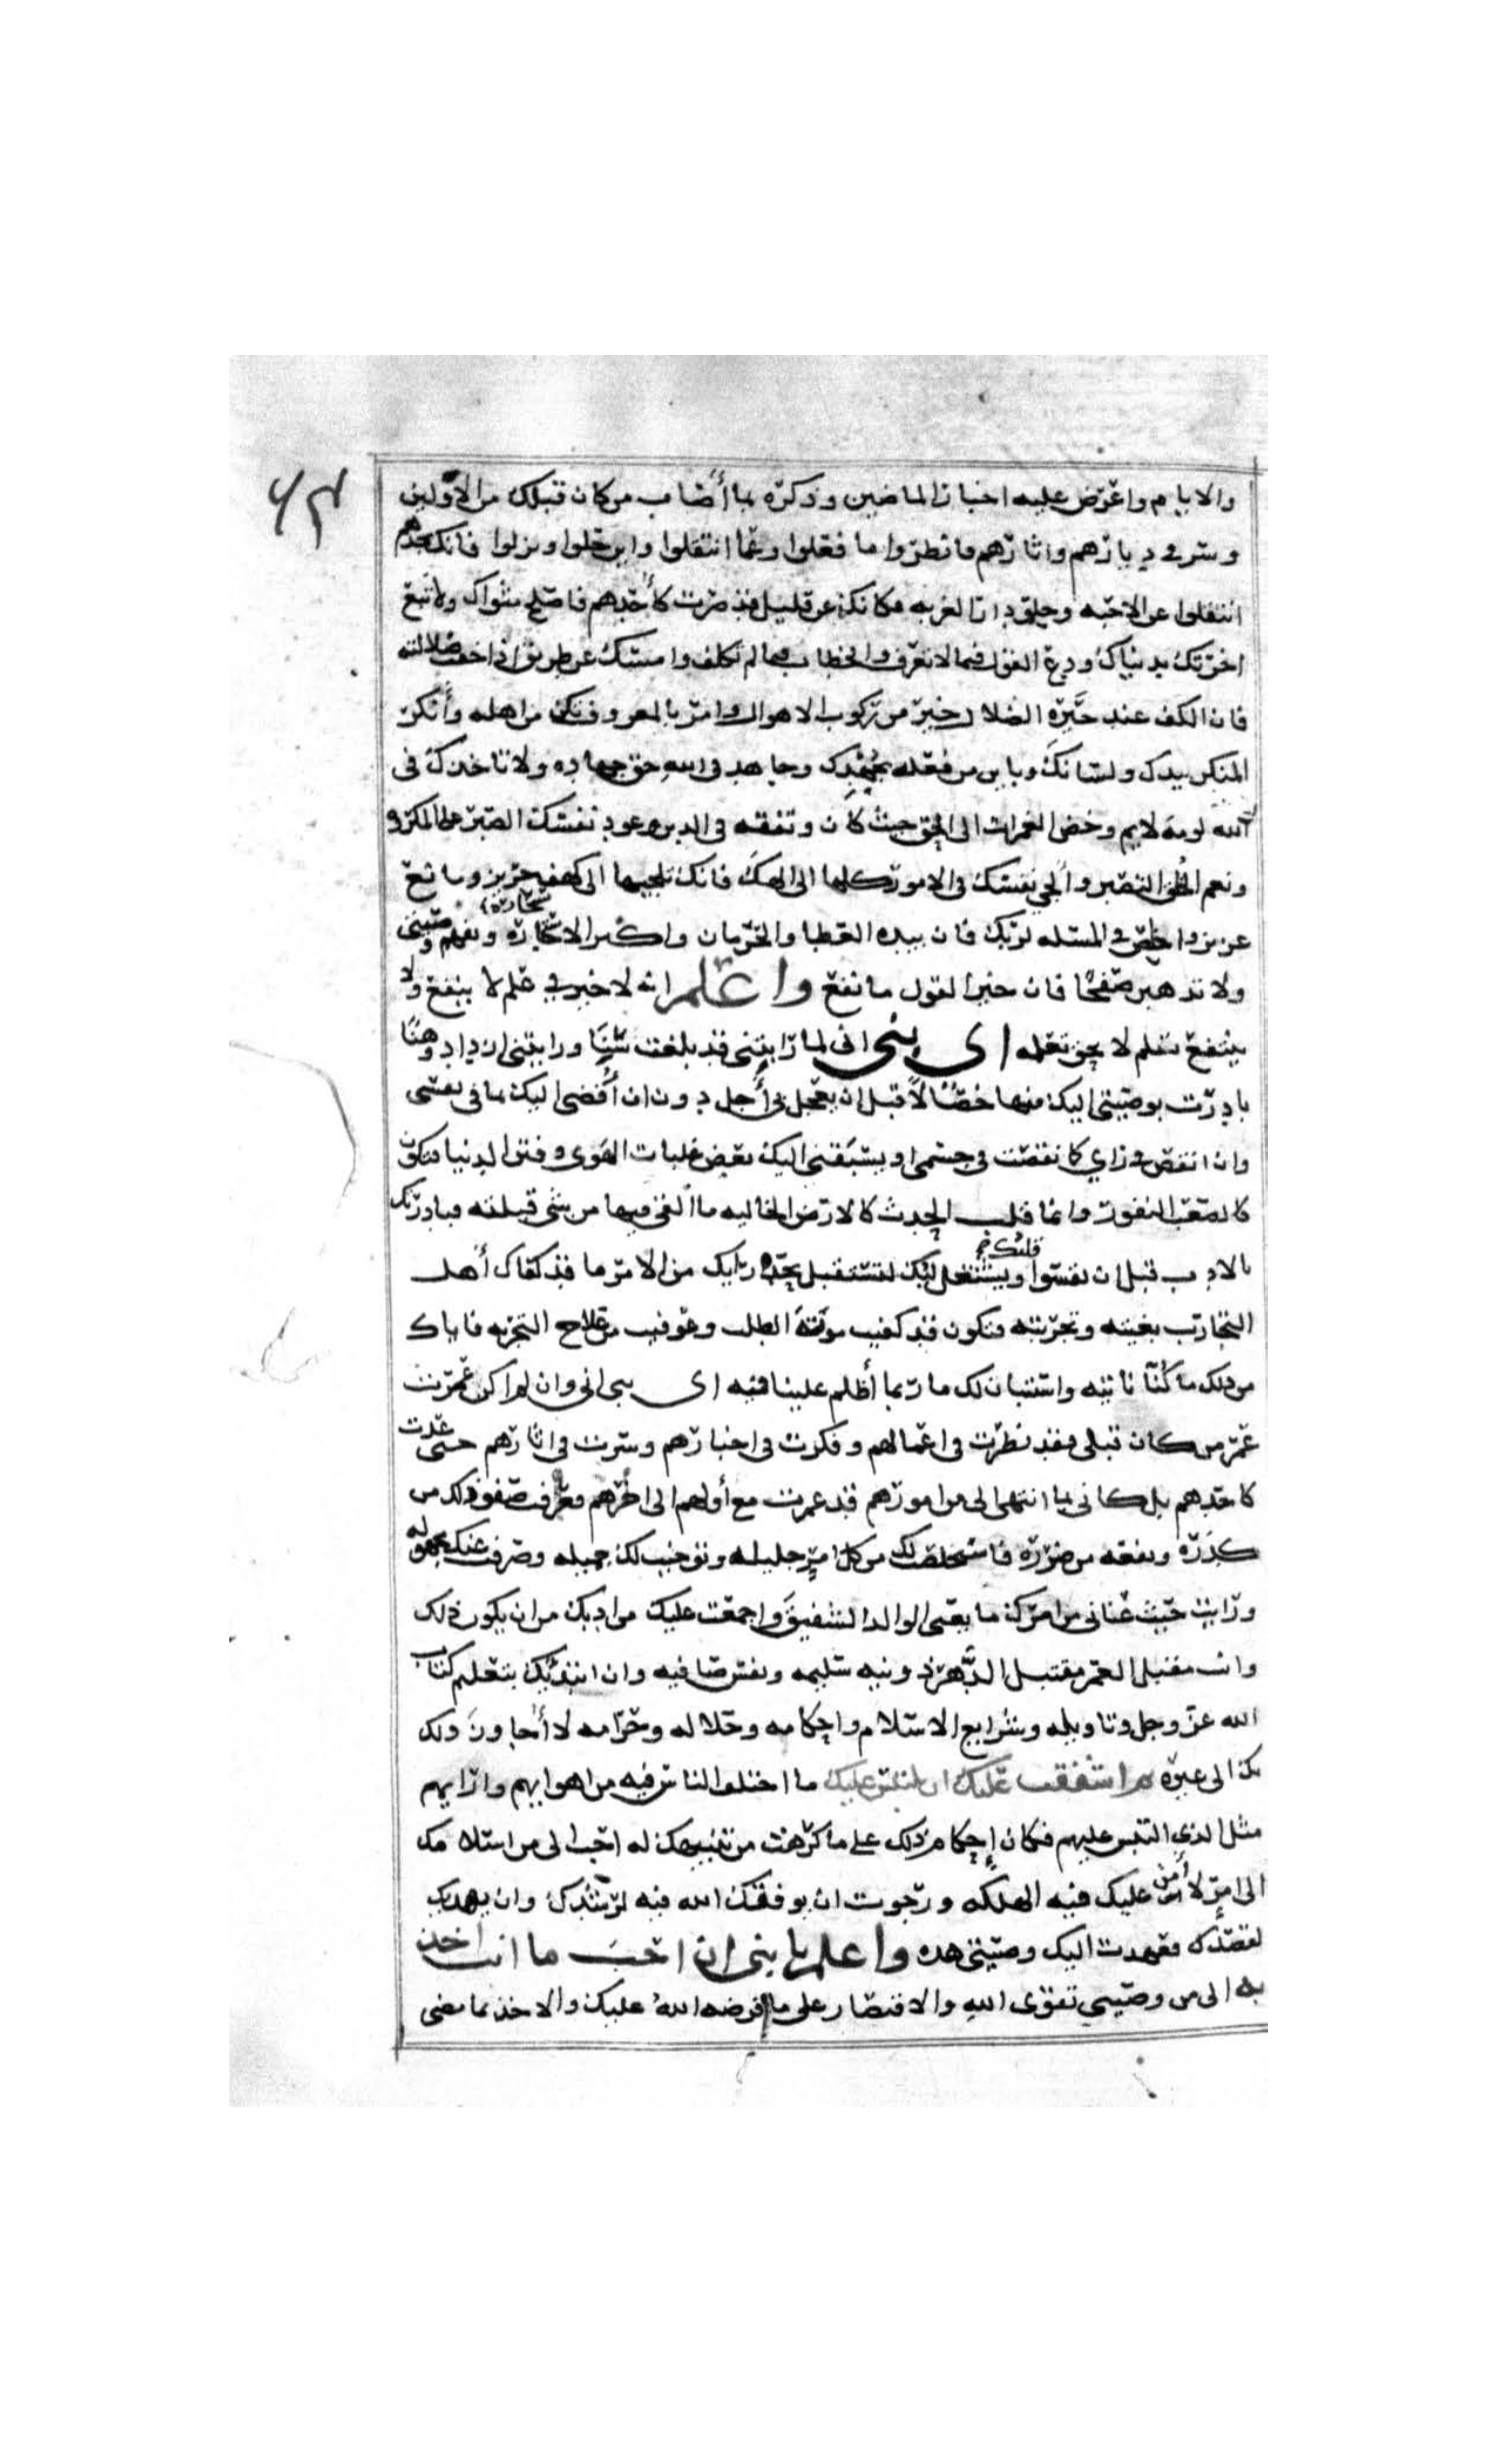 والايام واعرض عليه اخبار الماضين وذكره بما أصاب من كان قبلك من الاولين
وسر في ديارهم واثارهم فانظر وا ما فعلوا وعما انتقلوا واين حلوا ونزلوا فانك تجدهم
انتقلوا عن الاحبه وحلو دار الغربه وكانك عن قليل قد صرت كأحدهم فاصلح مثواك ولا تبع
اخرتك بدنياك ودع القول فيما لا تعرف والخطاب فيما لم تكلف وامسك عن طريق اذا خفت ضلالته
فان الكف عند حيرة الضلال خير من ركوب الاهوال وامر بالمعروف تكن من اهله وأنكر
المنكر بيدك ولسانك وباين من فعله بجهدك وجاهد في الله حق جهاده ولا تاخذك في
الله لومه لايم وخض الغمرات الى الحق حيث كان وتفقه في الدين وعود نفسك الصبر على المكروه
ونعم الخلق التصبر وألجي نفسك في الامور كلها الى الهك فانك تلجيها الى كهف حريز ومانع
عزيز واخلص في المسئله لربك فان بيده العطا والحرمان واكثر الاستخارة وتفهم وصيتي
ولا تذهبن صفحًا فان خير القول ما نفع واعلم انه لا خير في علم لا ينفع ولا
ينتفع بعلم لا يحق تعلمه اى بنى انى لما رايتنى قد بلغت سنًا ورايتنى ازداد وهنًا
بادرت بوصيتي اليك منها خصالًا قبل ان يعجل بى أجل دون ان أفضى اليك بما في نفسى
وان انقص في رايي كما نقصت في جسمى او يسبقنى اليك بعض غلبات الهوى وفتن الدنيا فتكون
كالصعب النفور وانما قلب الحدث كالارض الخاليه ما ألقى فيها من شى قبلته فبادرتك
بالادب قبل ان يقسوا قلبك ويشتغل لبك لتستقبل بجد رايك من الامر ما قد كفاك أهل
التجارب بغيته وتجربته فتكون قد كفيت مؤنة الطلب وعوفيت من علاج التجربه فاتاك
من ذلك ما كنّا ناتيه واستبان لك ما ربما أظلم علينا فيه اى بنى انى وان لم اكن عمرت
عمر من كان قبلى فقد نظرت في اعمالهم وفكرت في اخبارهم وسرت في اثارهم حتى عدت
كاحدهم بل كانى بما انتهى الى من امورهم قد عمرت مع أولهم الى اخرهم فعرفت صفو ذلك من
كدره ونفعه من ضرره فاستخلصت لك من كل امر جليله وتوخيت لك جميله وصرفت عنك مجهوله
ورايت حيث عنانى من امرك ما يعنى الوالد الشفيق واجمعت عليك من ادبك من ان يكون ذلك
وانت مقبل العمر مقتبل الدهر ذو نيه سليمه ونفس صافيه وان ابتديك بتعليم كتاب
الله عز وجل وتاويله وشرايع الاسلام واحكامه وحلاله وحرامه لا أجاوز ذلك
بك الى غيره ثم اشفقت عليك ان يلتبس عليك ما اختلف الناس فيه من اهوايهم وارايهم
مثل الذي التبس عليهم فكان إحكام ذلك على ما كرهت من تنبيهك له احب الى من اسلامك
الى امر لا أمن عليك فيه الهلكه ورجوت ان يوفقك الله فيه لرشدك وان يهديك
لقصدك فعهدت اليك وصيتي هذه واعلم يا بنى ان احب ما انت اخذ
به الى من وصيتي تقوى الله والاقتصار على ما فرضه الله عليك والاخذ بما مضى